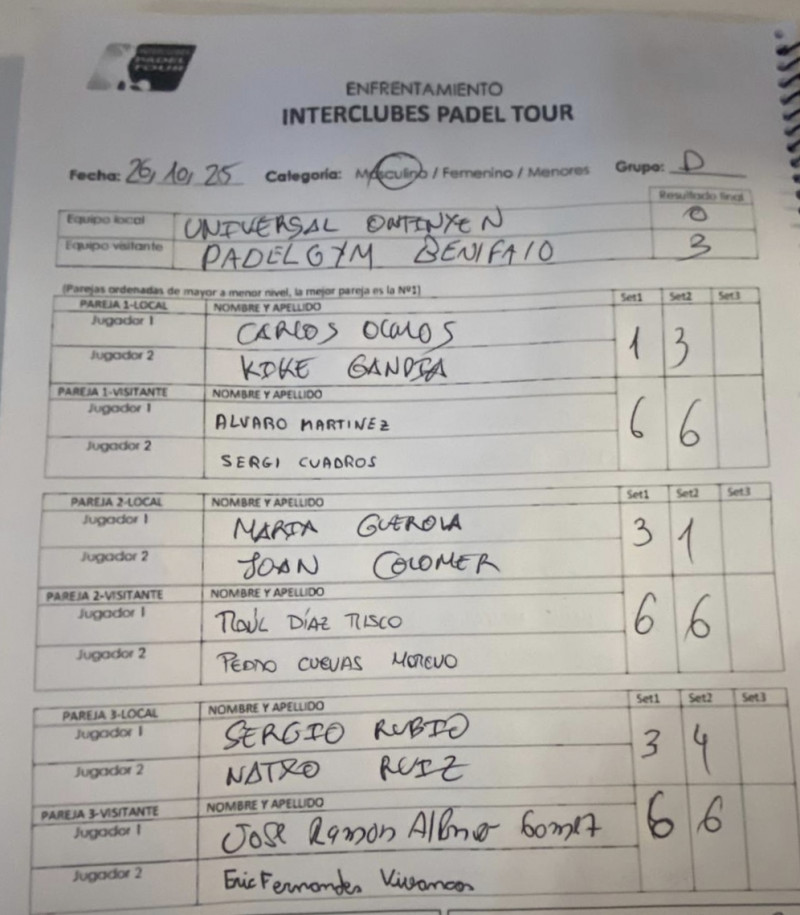 INTERCLUBES
PADEL
TOUR
ENFRENTAMIENTO
INTERCLUBES PADEL TOUR
Fecha: 26, 10, 25 Categoría: Masculino / Femenino / Menores Grupo: D
Resultado final
Equipo local UNIVERSAL ONTINYEN 0
Equipo visitante PADELGYM BENIFAIO 3
(Parejas ordenadas de mayor a menor nivel, la mejor pareja es la Nº1)
PAREJA 1-LOCAL NOMBRE Y APELLIDO Set1 Set2 Set3
Jugador 1 CARLOS
Jugador 2 KIKE GANDIA
1 3
PAREJA 1-VISITANTE NOMBRE Y APELLIDO
Jugador 1 ALVARO MARTINEZ
Jugador 2 SERGI CUADROS
6 6
PAREJA 2-LOCAL NOMBRE Y APELLIDO Set1 Set2 Set3
Jugador 1 MARIA GUEROLA
Jugador 2 JOAN COLOMER
3 1
PAREJA 2-VISITANTE NOMBRE Y APELLIDO
Jugador 1 RAÚL DÍAZ RISCO
Jugador 2 PEDRO CUEVAS MORENO
6 6
PAREJA 3-LOCAL NOMBRE Y APELLIDO Set1 Set2 Set3
Jugador 1 SERGIO RUBIO
Jugador 2 NATXO RUIZ
3 4
PAREJA 3-VISITANTE NOMBRE Y APELLIDO
Jugador 1 José Ramón Gomez
Jugador 2 Eric Fernandez Vivancos
6 6